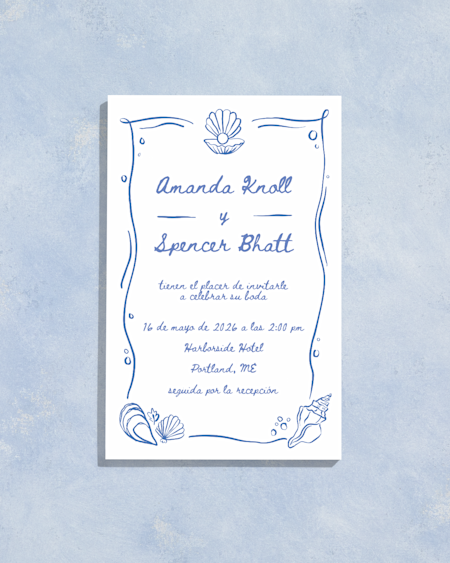 Amanda Knoll
y
Spencer Bhatt
tienen el placer de invitarle
a celebrar su boda
16 de mayo de 2026 a las 2:00 pm
Harborside Hotel
Portland, ME
seguida por la recepción